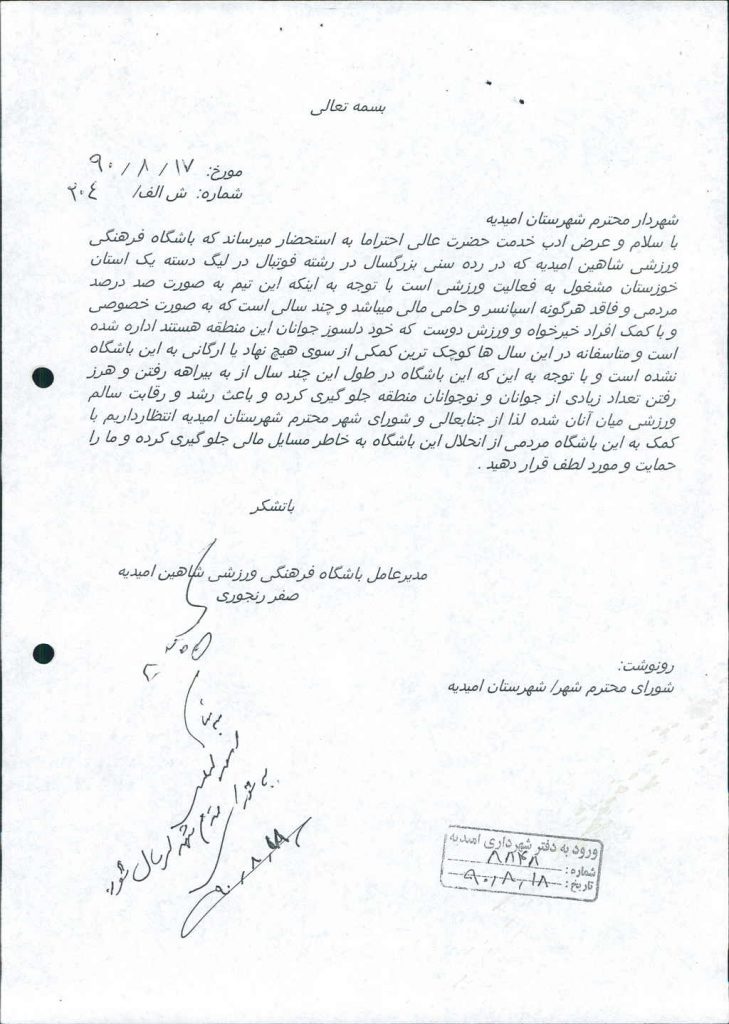 بسمه تعالی
مورخ: ۹۰/۸/۱۷
شماره: ش الف/ ۲۰٤
شهردار محترم شهرستان امیدیه
با سلام و عرض ادب خدمت حضرت عالی احتراما به استحضار میرساند که باشگاه فرهنگی
ورزشی شاهین امیدیه که در رده سنی بزرگسال در رشته فوتبال در لیگ دسته یک استان
خوزستان مشغول به فعالیت ورزشی است با توجه به اینکه این تیم به صورت صد درصد
مردمی و فاقد هرگونه اسپانسر و حامی مالی میباشد و چند سالی است که به صورت خصوصی
و با کمک افراد خیرخواه و ورزش دوست که خود دلسوز جوانان این منطقه هستند اداره شده
است و متاسفانه در این سال ها کوچک ترین کمکی از سوی هیچ نهاد یا ارگانی به این باشگاه
نشده است و با توجه به این که این باشگاه در طول این چند سال از به بیراهه رفتن و هرز
رفتن تعداد زیادی از جوانان و نوجوانان منطقه جلو گیری کرده و باعث رشد و رقابت سالم
ورزشی میان آنان شده لذا از جنابعالی و شورای شهر محترم شهرستان امیدیه انتظارداریم با
کمک به این باشگاه مردمی از انحلال این باشگاه به خاطر مسایل مالی جلو گیری کرده و ما را
حمایت و مورد لطف قرار دهید .
باتشکر
مدیرعامل باشگاه فرهنگی ورزشی شاهین امیدیه
صفر رنجوری
رونوشت:
شورای محترم شهر/ شهرستان امیدیه
محترم شهر ارسال شود
۹۰/۸/۱۸
ورود به دفتر شهرداری امیدیه
شماره: ۸۸۴۸
تاریخ: ۹۰/۸/۱۸